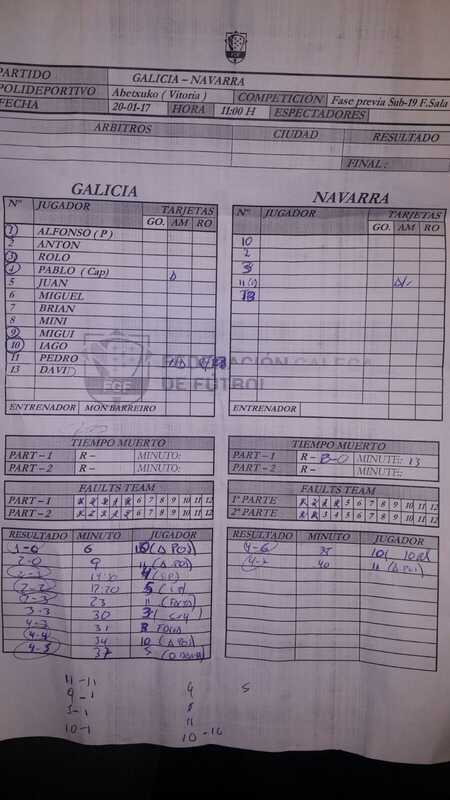 FGF
PARTIDO GALICIA – NAVARRA
POLIDEPORTIVO Abetxuko ( Vitoria ) COMPETICIÓN Fase previa Sub-19 F.Sala
FECHA 20-01-17 HORA 11:00 H ESPECTADORES
ARBITROS CIUDAD RESULTADO
FINAL :
GALICIA
Nº JUGADOR TARJETAS
GO. AM RO
1 ALFONSO ( P )
2 ANTON
3 ROLO
4 PABLO ( Cap)
5 JUAN
6 MIGUEL
7 BRIAN
8 MINI
9 MIGUI
10 IAGO
11 PEDRO
13 DAVID
FEDERACIÓN GALEGA
DE FÚTBOL
FGF
ENTRENADOR MON BARREIRO
NAVARRA
Nº JUGADOR TARJETAS
GO. AM RO
10
2
3
11
13
ENTRENADOR
TIEMPO MUERTO
PART – 1 R – MINUTO:
PART – 2 R – MINUTO:
FAULTS TEAM
PART – 1 1 2 3 4 5 6 7 8 9 10 11 12
PART – 2 1 2 3 4 5 6 7 8 9 10 11 12
TIEMPO MUERTO
PART – 1 R – B-O MINUTE:: 13
PART – 2 R – MINUTE::
FAULTS TEAM
1º PARTE 1 2 3 4 5 6 7 8 9 10 11 12
2º PARTE 1 2 3 4 5 6 7 8 9 10 11 12
RESULTADO MINUTO JUGADOR
1-0 6 10
2-0 9 11
2-1 4
2-2 17:20 5
2-3 23 11
3-3 30 3
4-3 31
4-4 34 10
4-5 37 5
RESULTADO MINUTO JUGADOR
4-6 38 10
40 11
11-11
9-1 9 5
3-1 8
11
10-1 10-10